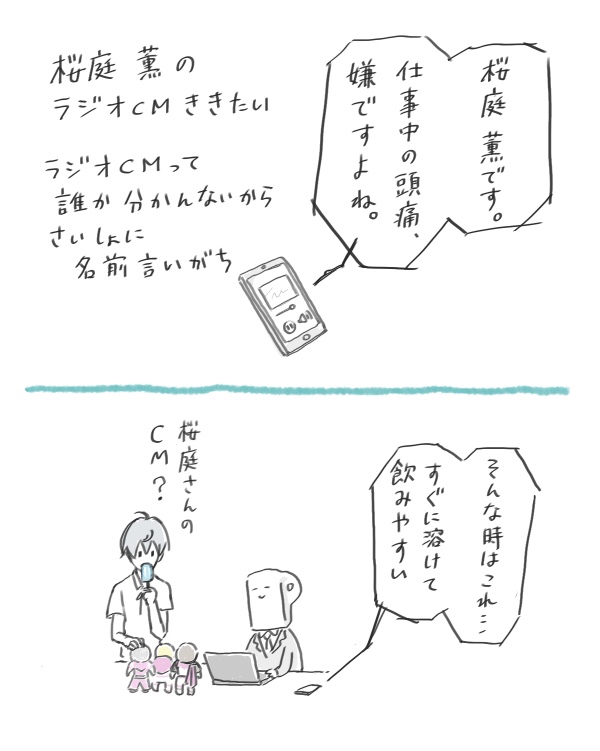 桜庭 薫の
ラジオCMききたい
ラジオCMって
誰か分かんないから
さいしょに
名前言いがち
桜庭 薫です。
仕事中の頭痛、
嫌ですよね。
桜庭さんの
CM?
そんな時はこれ…
すぐに溶けて
飲みやすい